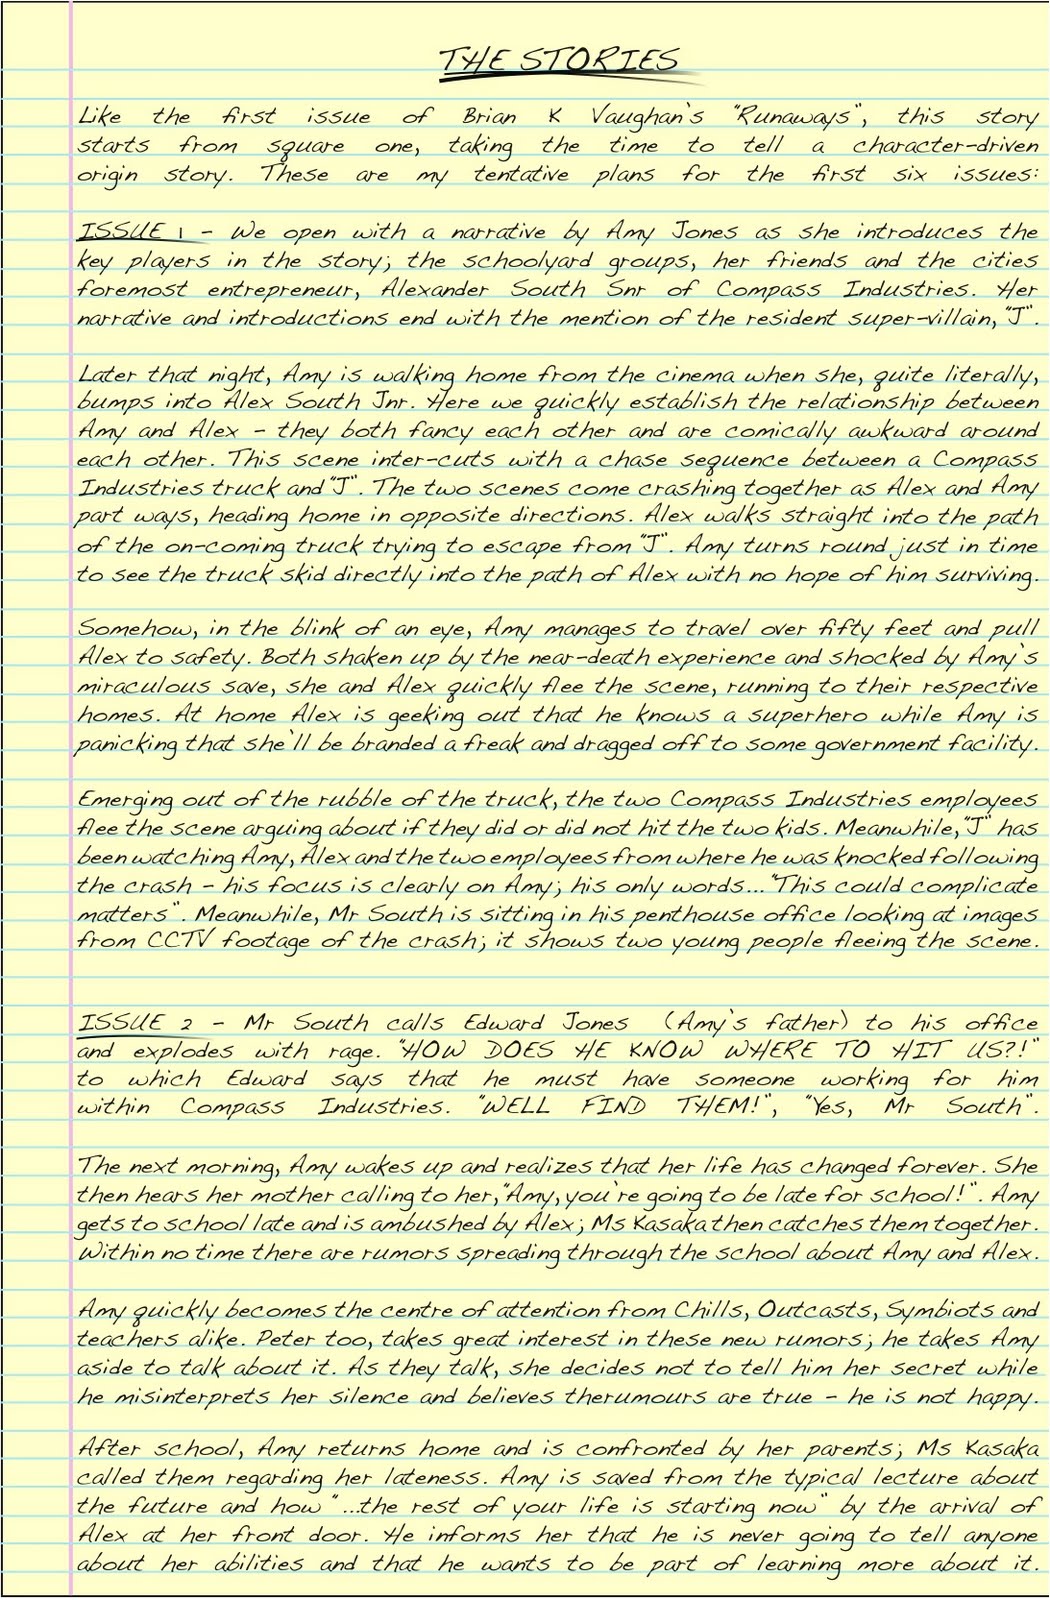 THE STORIES
Like the first issue of Brian K Vaughan`s "Runaways", this story
starts from square one, taking the time to tell a character-driven
origin story. These are my tentative plans for the first six issues:
ISSUE 1 - We open with a narrative by Amy Jones as she introduces the
key players in the story; the schoolyard groups, her friends and the cities
foremost entrepreneur, Alexander South Snr of Compass Industries. Her
narrative and introductions end with the mention of the resident super-villain, "J".
Later that night, Amy is walking home from the cinema when she, quite literally,
bumps into Alex South Jnr. Here we quickly establish the relationship between
Amy and Alex - they both fancy each other and are comically awkward around
each other. This scene inter-cuts with a chase sequence between a Compass
Industries truck and "J". The two scenes come crashing together as Alex and Amy
part ways, heading home in opposite directions. Alex walks straight into the path
of the on-coming truck trying to escape from "J". Amy turns round just in time
to see the truck skid directly into the path of Alex with no hope of him surviving.
Somehow, in the blink of an eye, Amy manages to travel over fifty feet and pull
Alex to safety. Both shaken up by the near-death experience and shocked by Amy`s
miraculous save, she and Alex quickly flee the scene, running to their respective
homes. At home Alex is geeking out that he knows a superhero while Amy is
panicking that she`ll be branded a freak and dragged off to some government facility.
Emerging out of the rubble of the truck, the two Compass Industries employees
flee the scene arguing about if they did or did not hit the two kids. Meanwhile, "J" has
been watching Amy, Alex and the two employees from where he was knocked following
the crash - his focus is clearly on Amy; his only words... "This could complicate
matters". Meanwhile, Mr South is sitting in his penthouse office looking at images
from CCTV footage of the crash; it shows two young people fleeing the scene.
ISSUE 2 - Mr South calls Edward Jones (Amy`s father) to his office
and explodes with rage. "HOW DOES HE KNOW WHERE TO HIT US?!"
to which Edward says that he must have someone working for him
within Compass Industries. "WELL FIND THEM!", "Yes, Mr South".
The next morning, Amy wakes up and realizes that her life has changed forever. She
then hears her mother calling to her, "Amy, you`re going to be late for school!". Amy
gets to school late and is ambushed by Alex; Ms Kasaka then catches them together.
Within no time there are rumors spreading through the school about Amy and Alex.
Amy quickly becomes the centre of attention from Chills, Outcasts, Symbiots and
teachers alike. Peter too, takes great interest in these new rumors; he takes Amy
aside to talk about it. As they talk, she decides not to tell him her secret while
he misinterprets her silence and believes therumours are true - he is not happy.
After school, Amy returns home and is confronted by her parents; Ms Kasaka
called them regarding her lateness. Amy is saved from the typical lecture about
the future and how "...the rest of your life is starting now" by the arrival of
Alex at her front door. He informs her that he is never going to tell anyone
about her abilities and that he wants to be part of learning more about it.